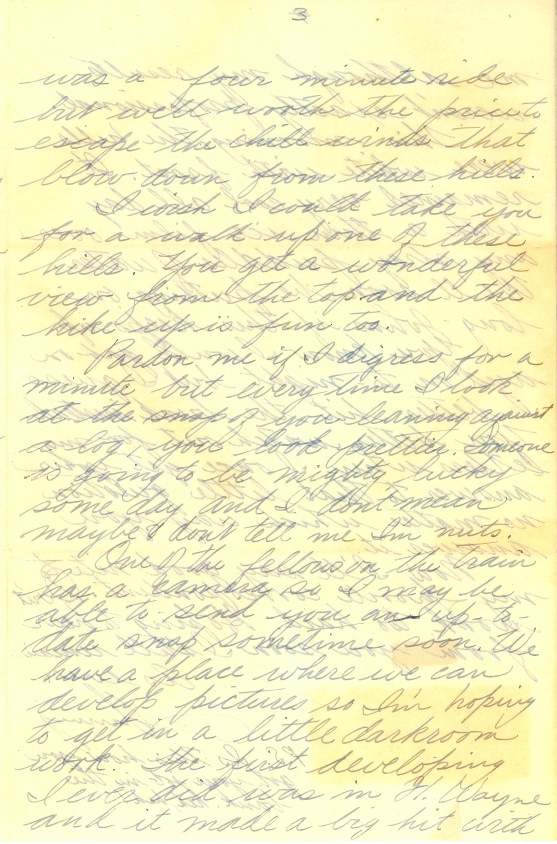 3
was a four minute ride
but well worth the price to
escape the chill winds that
blow down from these hills.
I wish I could take you
for a walk up one of these
hills. You get a wonderful
view from the top and the
hike up is fun too.
Pardon me if I digress for a
minute but every time I look
at the snap of you leaning against
a log, you look prettier. Someone
is going to be mighty lucky
some day and I don't mean
maybe & don't tell me I'm nuts.
One of the fellows on the train
has a camera so I may be
able to send you an up-to-
date snap sometime soon. We
have a place where we can
develop pictures so I'm hoping
to get in a little darkroom
work. The first developing
I ever did was in Ft. Wayne
and it made a big hit with